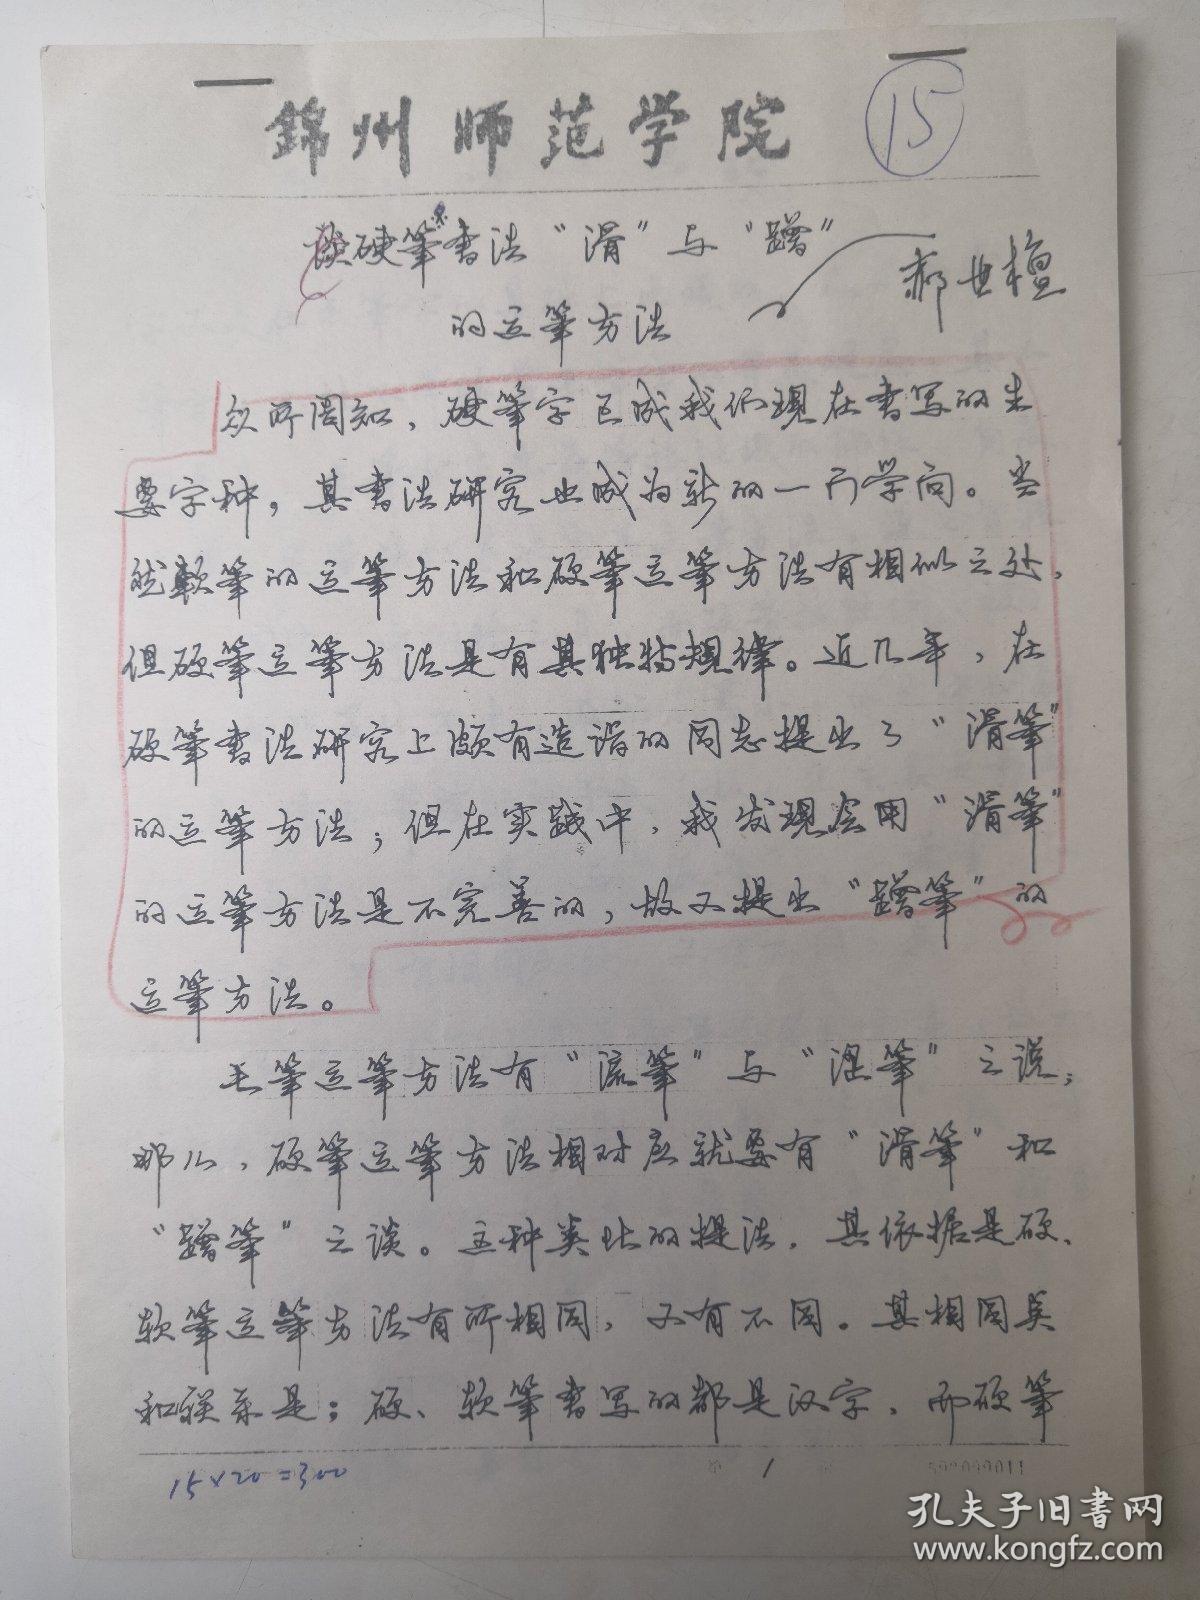 錦州师范学院
15
谈硬筆书法“滑”与“蹭”
的运筆方法
郝世檀
众所周知，硬筆字已成我们现在书写的主
要字种，其书法研究也成为新的一门学问。当
然軟筆的运筆方法和硬筆运筆方法有相似之处，
但硬筆运筆方法是有其独特规律。近几年，在
硬筆书法研究上颇有造诣的同志提出了“滑筆”
的运筆方法；但在实践中，我发现应用“滑筆”
的运筆方法是不完善的，故又提出“蹭筆”的
运筆方法。
毛筆运筆方法有“流筆”与“涩筆”之说；
那么，硬筆运筆方法相对应就要有“滑筆”和
“蹭筆”之谈。这种类比的提法，其依据是硬、
软筆运筆方法有所相同，又有不同。其相同点
和联系是：硬、软筆书写的都是汉字，而硬筆
15×20=300
1
孔夫子旧书网
www.kongfz.com